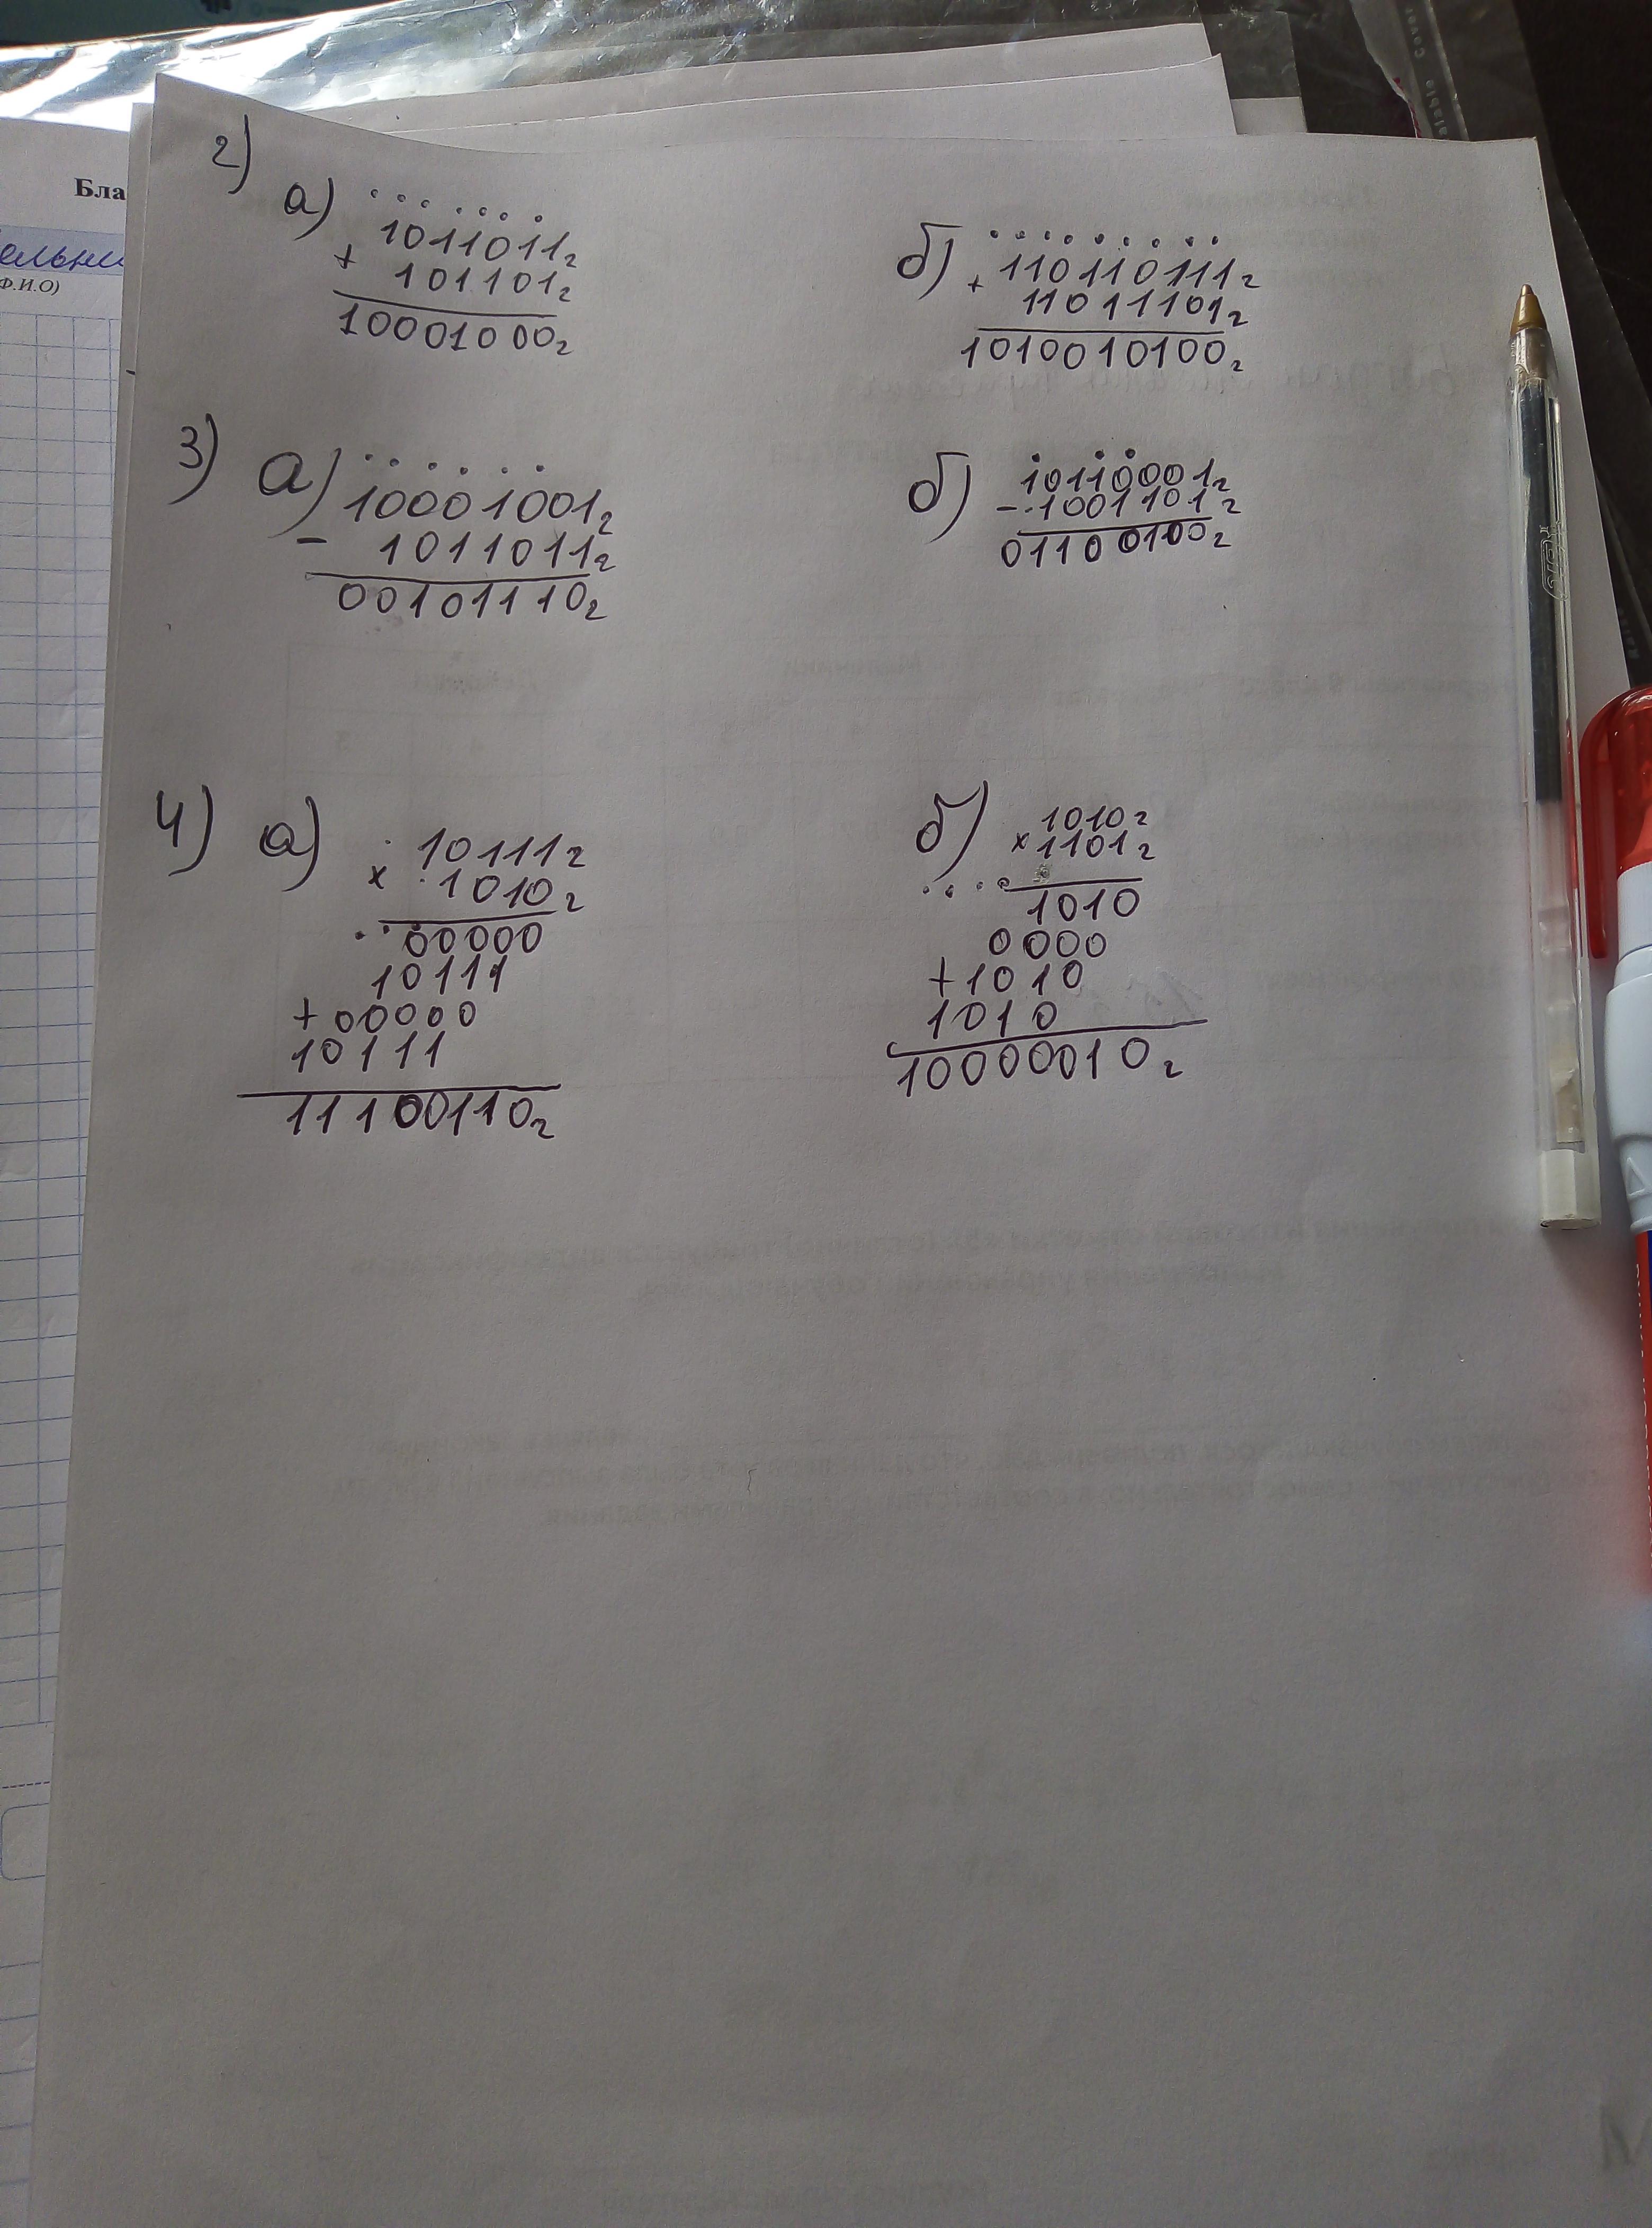 2)
а)
1011011₂
+ 101101₂
10001000₂
б)
110110111₂
+ 11011101₂
1010010100₂
3)
а)
10001001₂
- 1011011₂
00101110₂
б)
10110001₂
- 1001101₂
01100100₂
4)
а)
10111₂
× 1010₂
00000
10111
+ 00000
10111
11100110₂
б)
1010₂
× 1101₂
1010
0000
+ 1010
1010
10000010₂
Бла
ельни
Ф.И.О)